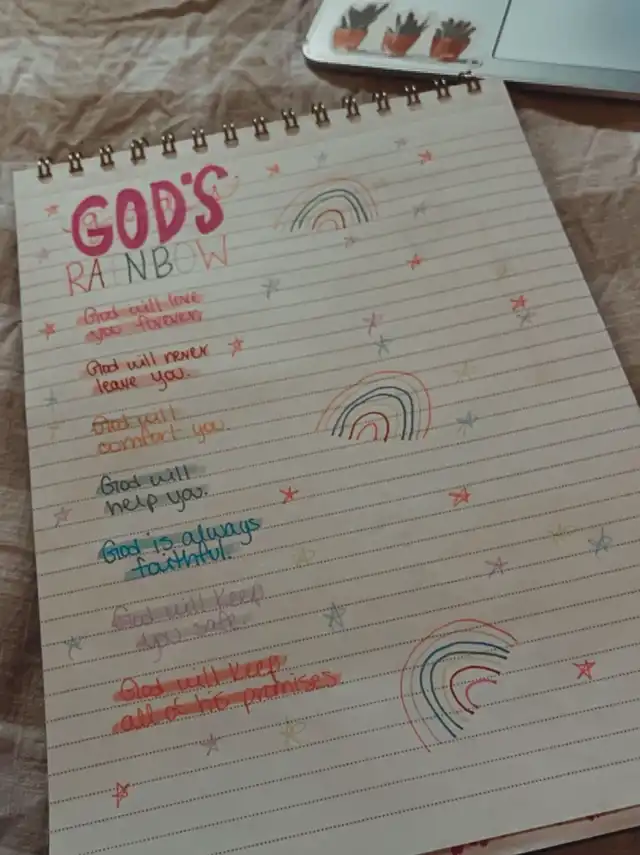 GOD'S
RAINBOW
God will love
you forever.
God will never
leave you.
God will
comfort you.
God will
help you.
God is always
faithful.
God will keep
you safe.
God will keep
all of his promises